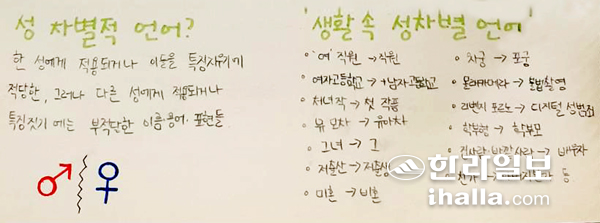 성 차별적 언어?
한 성에게 적용되거나 이들을 특징지우기에
적당한, 그러나 다른 성에게 적용되거나
특징짓기 에는 부적당한 이름·용어·표현들
'생활 속 성차별 언어'
· '여' 직원 → 직원
· 여자고등학교 → +남자고등학교
· 처녀작 → 첫 작품
· 유모차 → 유아차
· 그녀 → 그
· 저출산 → 저출생
· 미혼 → 비혼
· 자궁 → 포궁
· 몰래카메라 → 불법촬영
· 리벤지 포르노 → 디지털 성범죄
· 학부형 → 학부모
· 집사람·바깥사람 → 배우자
등
한라일보
ihalla.com